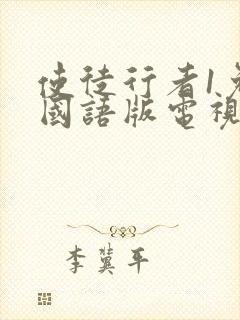 使徒行者1免
國語版電視
李冀平